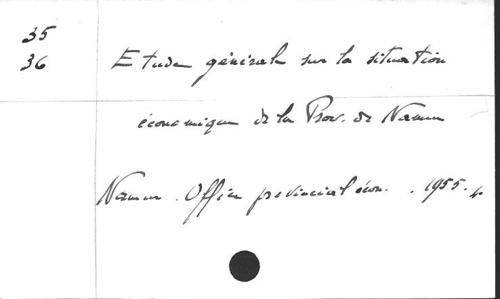 35
36 Etude générale sur la situation
économique de la Prov. de Namur
Namur. Office provincial écon. . 1955.